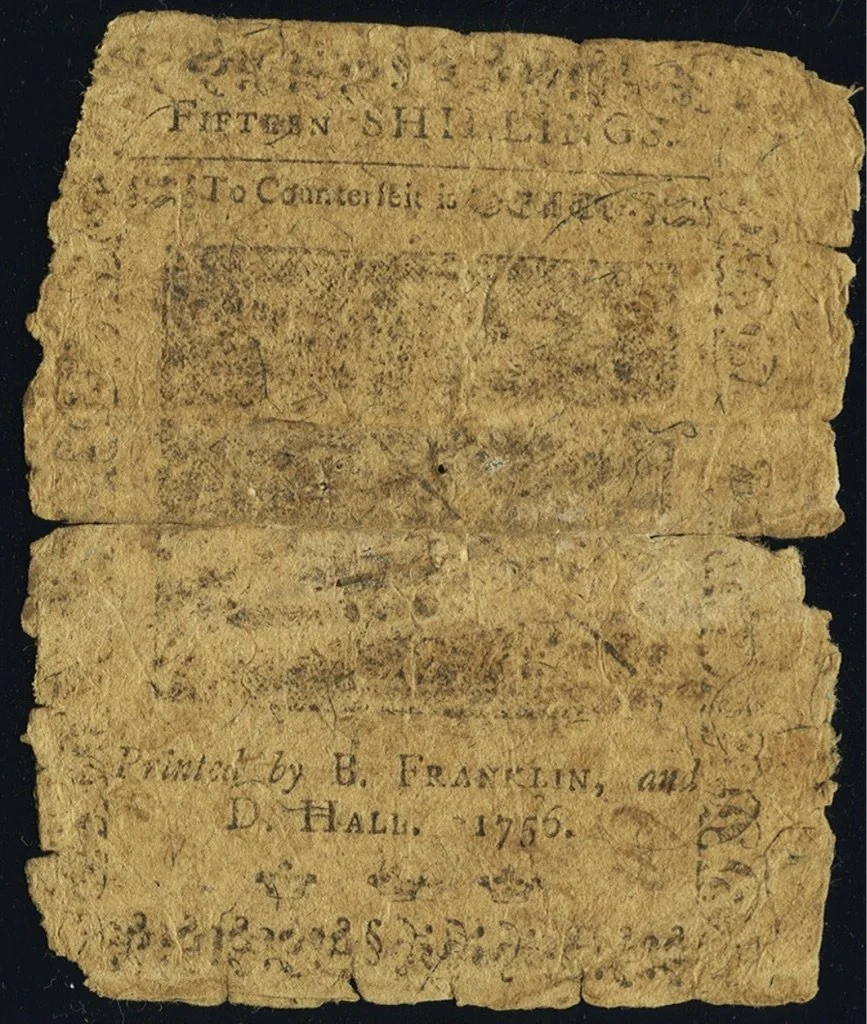 FIFTEEN SHILLINGS.
To Counterfeit is DEATH.
Printed by B. FRANKLIN, and
D. HALL. 1756.